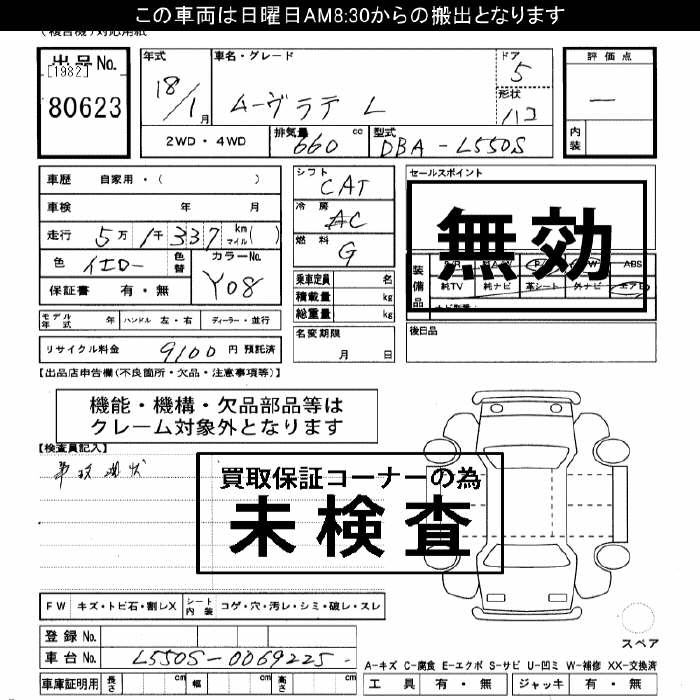 この車両は日曜日AM8:30からの搬出となります
出品No.
[1982]
80623
年式
18/1月
車名・グレード
ムーヴラテ L
ドア
5
形状
ハコ
評価点
—
内装
2WD・4WD
排気量
660 cc
型式
DBA-L550S
車歴 自家用・( )
車検 年 月
走行 5万1千337 km マイル( )
色 イエロー 色替
カラーNo.
Y08
保証書 有・無
モデル年式 年 ハンドル 左・右 ディーラー・並行
リサイクル料金 9100 円 預託済
シフト
CAT
冷房
AC
燃料
G
乗車定員 名
積載量 kg
総重量 kg
名変期限
月 日
セールスポイント
無効
装備品
ABS
純TV 純ナビ 革シート 外ナビ エアB
後日品
【出品店申告欄(不良箇所・欠品・注意事項等)】
機能・機構・欠品部品等は
クレーム対象外となります
【検査員記入】
事故現状
買取保証コーナーの為
未検査
FW キズ・トビ石・割レX シート内装 コゲ・穴・汚レ・シミ・破レ・スレ
登録No.
車台No. L550S-0069225
車庫証明用 長さ cm 幅 cm 高さ cm
スペア
A-キズ C-腐食 E-エクボ S-サビ U-凹ミ W-補修 XX-交換済
工具 有・無 ジャッキ 有・無